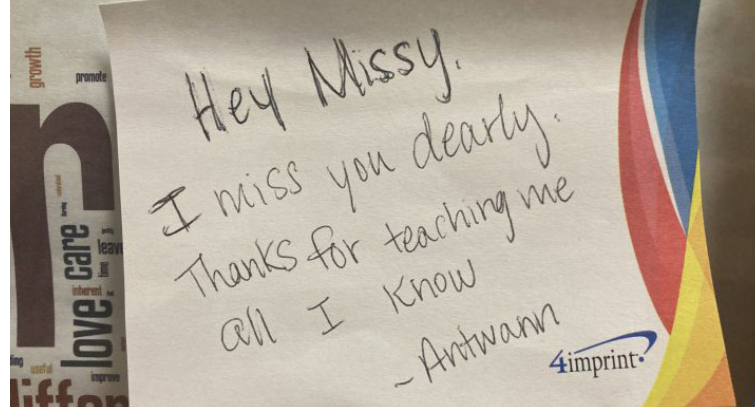 growth
promote
n
care
leave
love
inherent
ding
useful
improve
differen
Hey Missy.
I miss you dearly.
Thanks for teaching me
all I know
-Antwann
4imprint